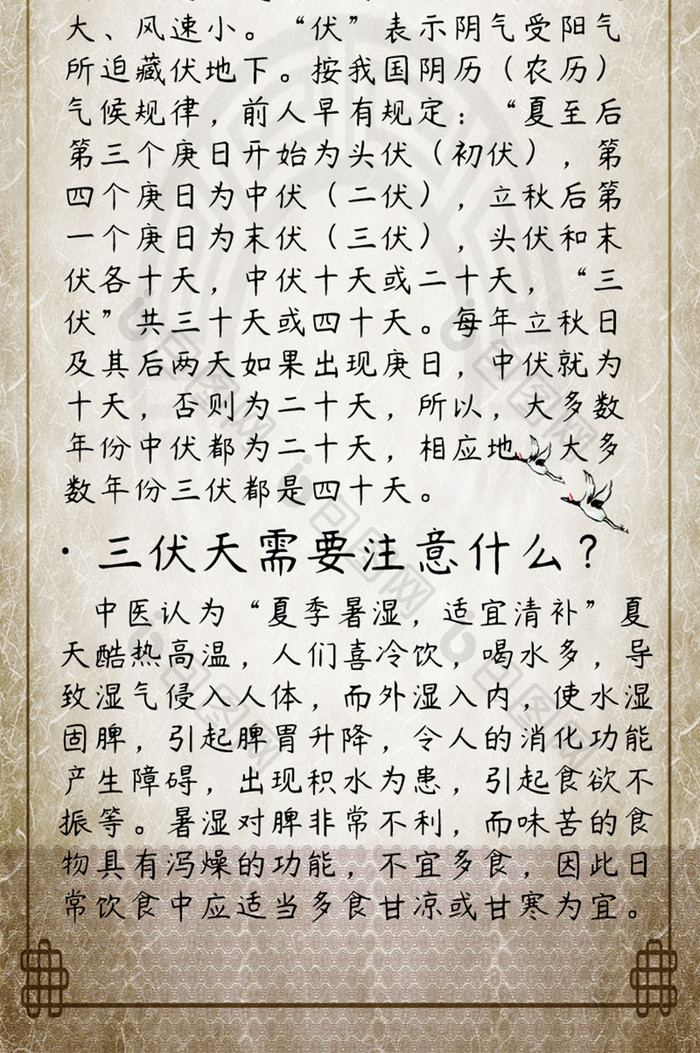 大、风速小。“伏”表示阴气受阳气
所迫藏伏地下。按我国阴历（农历）
气候规律，前人早有规定：“夏至后
第三个庚日开始为头伏（初伏），第
四个庚日为中伏（二伏），立秋后第
一个庚日为末伏（三伏），头伏和末
伏各十天，中伏十天或二十天，“三
伏”共三十天或四十天。每年立秋日
及其后两天如果出现庚日，中伏就为
十天，否则为二十天，所以，大多数
年份中伏都为二十天，相应地，大多
数年份三伏都是四十天。
·三伏天需要注意什么？
中医认为“夏季暑湿，适宜清补”夏
天酷热高温，人们喜冷饮，喝水多，导
致湿气侵入人体，而外湿入内，使水湿
固脾，引起脾胃升降，令人的消化功能
产生障碍，出现积水为患，引起食欲不
振等。暑湿对脾非常不利，而味苦的食
物具有泻燥的功能，不宜多食，因此日
常饮食中应适当多食甘凉或甘寒为宜。